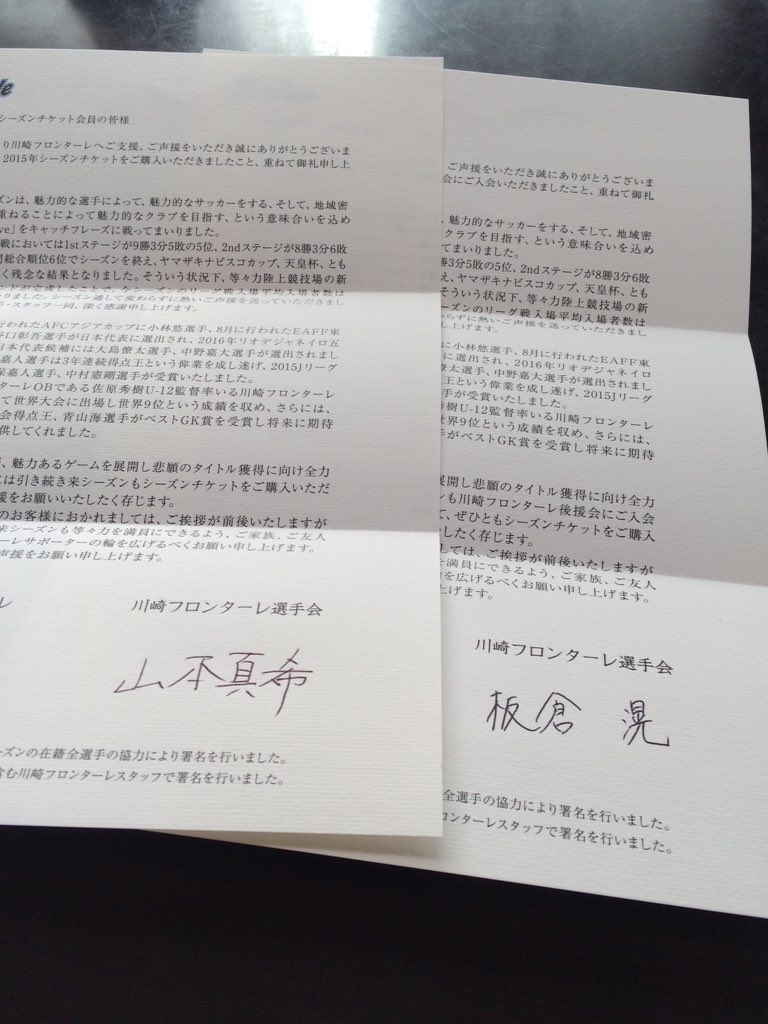 le
シーズンチケット会員の皆様
り川崎フロンターレへご支援、ご声援をいただき誠にありがとうございま
2015年シーズンチケットをご購入いただきましたこと、重ねて御礼申し上
ズンは、魅力的な選手によって、魅力的なサッカーをする、そして、地域密
重ねることによって魅力的なクラブを目指す、という意味合いを込め
ve」をキャッチフレーズに戦ってまいりました。
戦においては1stステージが9勝3分5敗の5位、2ndステージが8勝3分6敗
間総合順位6位でシーズンを終え、ヤマザキナビスコカップ、天皇杯、とも
く残念な結果となりました。そういう状況下、等々力陸上競技場の新
ドが完成したことで、なシーズンのリーグ戦入場平均入場者数は
りました。シーズン通して変わらずに熱いご声援を送っていただきまし
・スタッフ一同、深く感謝申し上げます。
行われたAFCアジアカップに小林悠選手、8月に行われたEAFF東
谷口彰悟選手が日本代表に選出され、2016年リオデジャネイロ五
日本代表候補には大島僚太選手、中野嘉大選手が選出されまし
嘉人選手は3年連続得点王という偉業を成し遂げ、2015Jリーグ
保嘉人選手、中村憲剛選手が受賞いたしました。
ターレOBである佐原秀樹U-12監督率いる川崎フロンターレ
て世界大会に出場し世界9位という成績を収め、さらには、
会得点王、青山海選手がベストGK賞を受賞し将来に期待
供してくれました。
、魅力あるゲームを展開し悲願のタイトル獲得に向け全力
には引き続き来シーズンもシーズンチケットをご購入いただ
援をお願いいたしたく存じます。
のお客様におかれましては、ご挨拶が前後いたしますが
来シーズンも等々力を満員にできるよう、ご家族、ご友人
ーレサポーターの輪を広げるべくお願い申し上げます。
声援をお願い申し上げます。
レ
川崎フロンターレ選手会
山本真希
ズンの在籍全選手の協力により署名を行いました。
含む川崎フロンターレスタッフで署名を行いました。
ご声援をいただき誠にありがとうございま
会にご入会いただきましたこと、重ねて御礼
、魅力的なサッカーをする、そして、地域密
クラブを目指す、という意味合いを込め
てまいりました。
勝3分5敗の5位、2ndステージが8勝3分6敗
え、ヤマザキナビスコカップ、天皇杯、とも
そういう状況下、等々力陸上競技場の新
ーズンのリーグ戦入場平均入場者数は
らずに熱いご声援を送っていただきまし
し上げます。
に小林悠選手、8月に行われたEAFF東
に選出され、2016年リオデジャネイロ
僚太選手、中野嘉大選手が選出されまし
王という偉業を成し遂げ、2015Jリーグ
手が受賞いたしました。
樹U-12監督率いる川崎フロンターレ
世界9位という成績を収め、さらには、
手がベストGK賞を受賞し将来に期待
展開し悲願のタイトル獲得に向け全力
ンも川崎フロンターレ後援会にご入会
て、ぜひともシーズンチケットをご購入
したく存じます。
しては、ご挨拶が前後いたしますが
を満員にできるよう、ご家族、ご友人
を広げるべくお願い申し上げます。
上げます。
川崎フロンターレ選手会
板倉 滉
全選手の協力により署名を行いました。
ロンターレスタッフで署名を行いました。